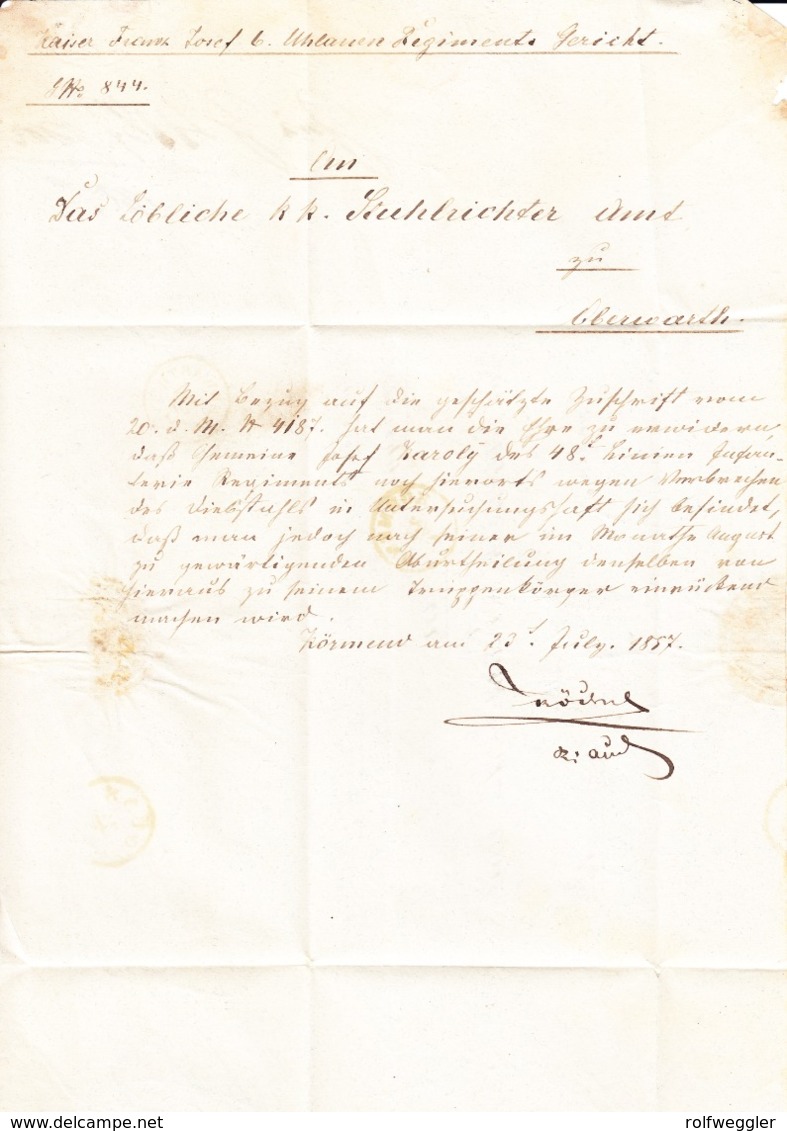 Kaiser Franz Josef 6. Uhlanen Regiments Gericht.
No 844.
An
Das Löbliche k k. Stuhlrichter Amt
zu
Oberwarth.
Mit Bezug auf die geschätzte Zuschrift vom
20. d. M. N 4187. hat man die Ehre zu erwidern,
daß Gemeine Josef Karoly des 48t Linien Infan-
terie Regiments noch hierorts wegen Verbrechen
des Diebstahls in Untersuchungshaft sich befindet,
daß man jedoch nach seiner im Monathe August
zu gewärtigenden Aburtheilung denselben von
hieraus zu seinem Truppenkörper einrückend
machen wird.
Körmend am 23t July. 1857.
delcampe.net
rolfweggler